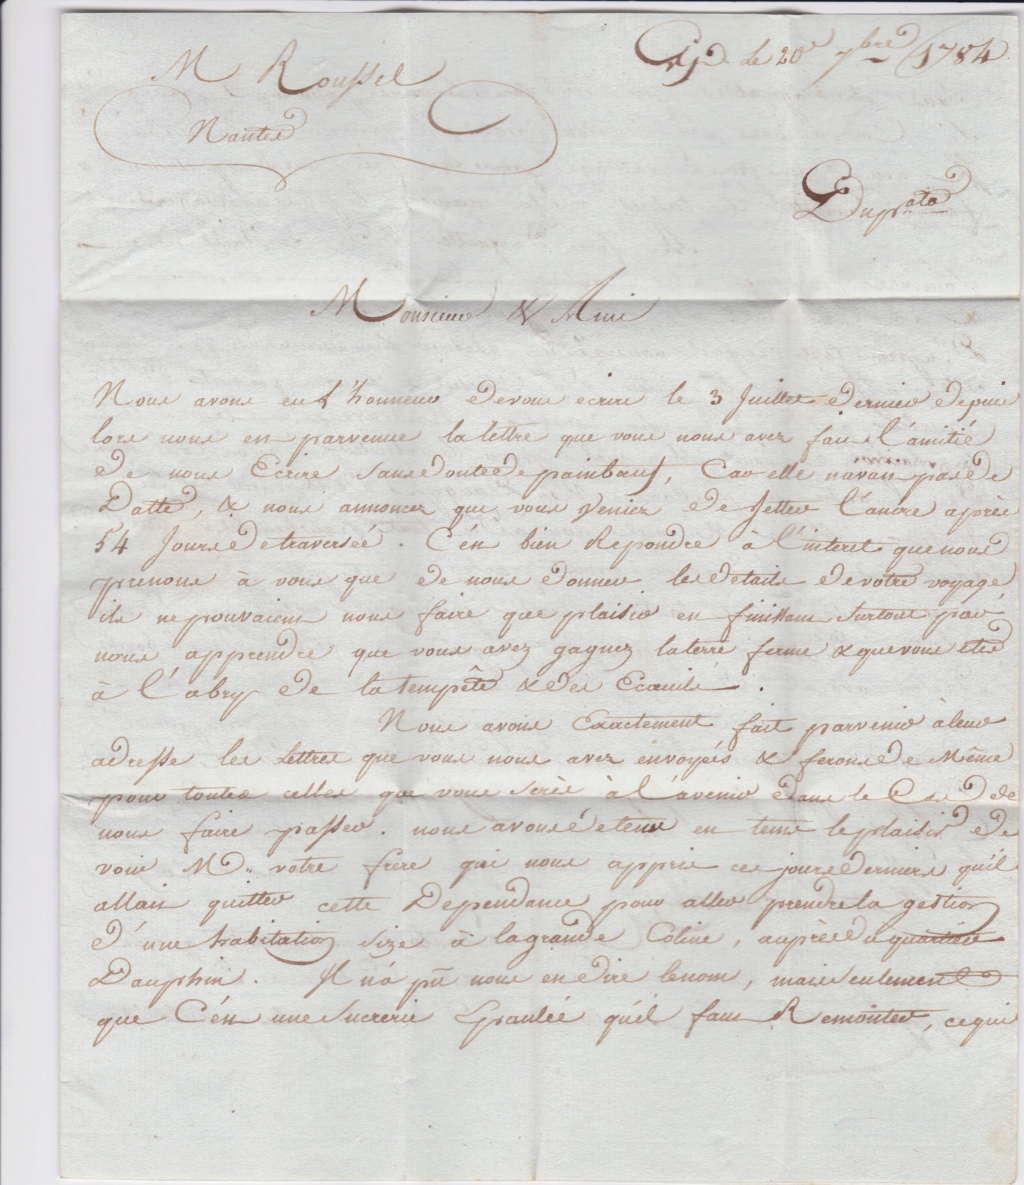 M Roussel
le 20e 7bre 1784
Nantes
Dupata
Monsieur & Ami
Nous avons eu l'honneur de vous ecrire le 3 Juillet dernier depuis
lors nous est parvenue la lettre que vous nous avez fait l'amitié
de nous Ecrire sans doute de paimbœuf, Car elle n'avait pas de
Datte, & nous annoncez que vous Veniez de Jetter l'ancre après
54 Jours de traversée. C'est bien Repondre à l'interet que nous
prenons à vous que de nous donner les details de votre voyage
ils ne pouvaient nous faire que plaisir en finissant surtout par
nous apprendre que vous avez gagnez la terre ferme & que vous etes
à l'abry de la tempête & des Ecueils.
Nous avons Exactement fait parvenir à leur
adresse les Lettres que vous nous avez envoyés & ferons de Même
pour toutes celles que vous serés à l'avenir dans le Cas de
nous faire passer. nous avons été tems en tems le plaisir de
voir M. votre frere qui nous apprit ces jours derniers qu'il
allait quitter cette Dependance pour aller prendre la gestion
d'une habitation size à la grande Coline, auprès du quartier
Dauphin. Il n'a pû nous en dire le nom, mais seulement
que C'est une Sucrerie Epaulée qu'il faut Remonter, ce qui